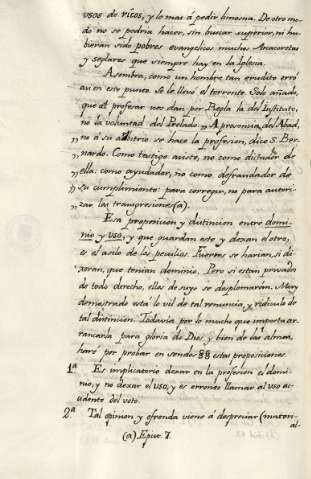 usos de ricos, y lo mas á pedir limosna. De otro mo-
do no se podria hacer, sin buscar superior, ni hu-
bieran sido pobres evangelicos muchos Anacoretas
y seglares que siempre hay en la Iglesia.
Asombra, como un hombre tan erudito erró
aun en este punto. Se le llevó el torrente. Solo añado,
que el profesar nos dan por Regla la del Instituto,
no la voluntad del Prelado. „ A presencia, del Abad,
„ no á su arbitrio se hace la profesion, dice S. Ber-
„ nardo. Como testigo asiste, no como dictador de
„ ella: como ayudador, no como defraudador de
„ su cumplimiento: para corregir, no para autori-
„ zar las transgresiones (a).
Esa proposicion y distincion entre domi-
nio y uso, y que guardan esto y dexan el otro,
es el asilo de los peculios. Fuertes se harian, si di-
xeran, que tenian dominio. Pero si estan privados
de todo derecho, ellas de suyo se desplomarán. Muy
demostrado está lo vil de tal renuncia y ridiculo de
tal distincion. Todavia por lo mucho que importa ar-
rancarla para gloria de Dios, y bien de las almas,
haré por probar en sendos §§ estas proposiciones.
1ª Es implicatorio dexar en la profesion el domi-
nio, y no dexar el uso, y es erroneo llamar al uso ac-
cidente del voto.
2ª Tal opinion y ofrenda viene á despreciar (materi-
al-
(a) Epist. 7.